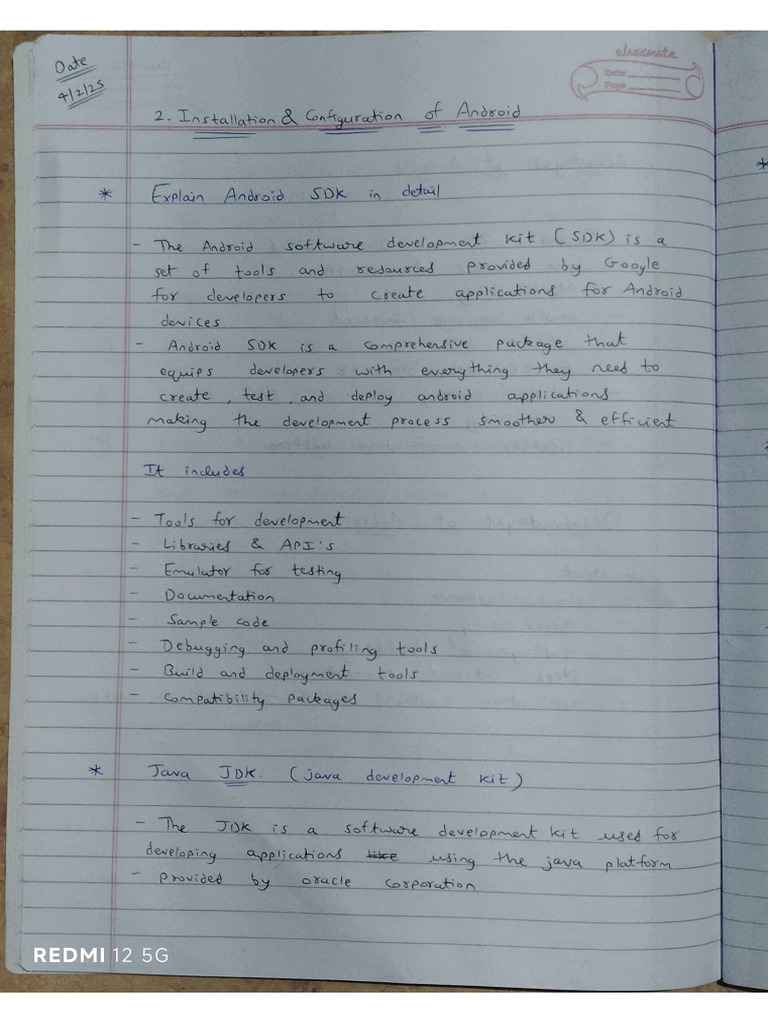 classmate
Date
Page
Date
4/2/25
2. Installation & Configuration of Android
* Explain Android SDK in detail
- The Android software development kit (SDK) is a
set of tools and resources provided by Google
for developers to create applications for Android
devices
- Android SDK is a comprehensive package that
equips developers with everything they need to
create, test, and deploy android applications
making the development process smoother & efficient
It includes
- Tools for development
- Libraries & API's
- Emulator for testing
- Documentation
- Sample code
- Debugging and profiling tools
- Build and deployment tools
- Compatibility packages
* Java JDK. (java development kit)
- The JDK is a software development kit used for
developing applications like using the java platform
- provided by oracle corporation
REDMI 12 5G